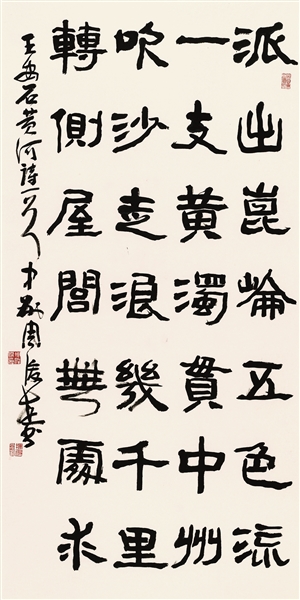 派出崑崘五色流
一支黃濁貫中州
吹沙走浪幾千里
轉側屋閭無處求
王安石黄河詩一首